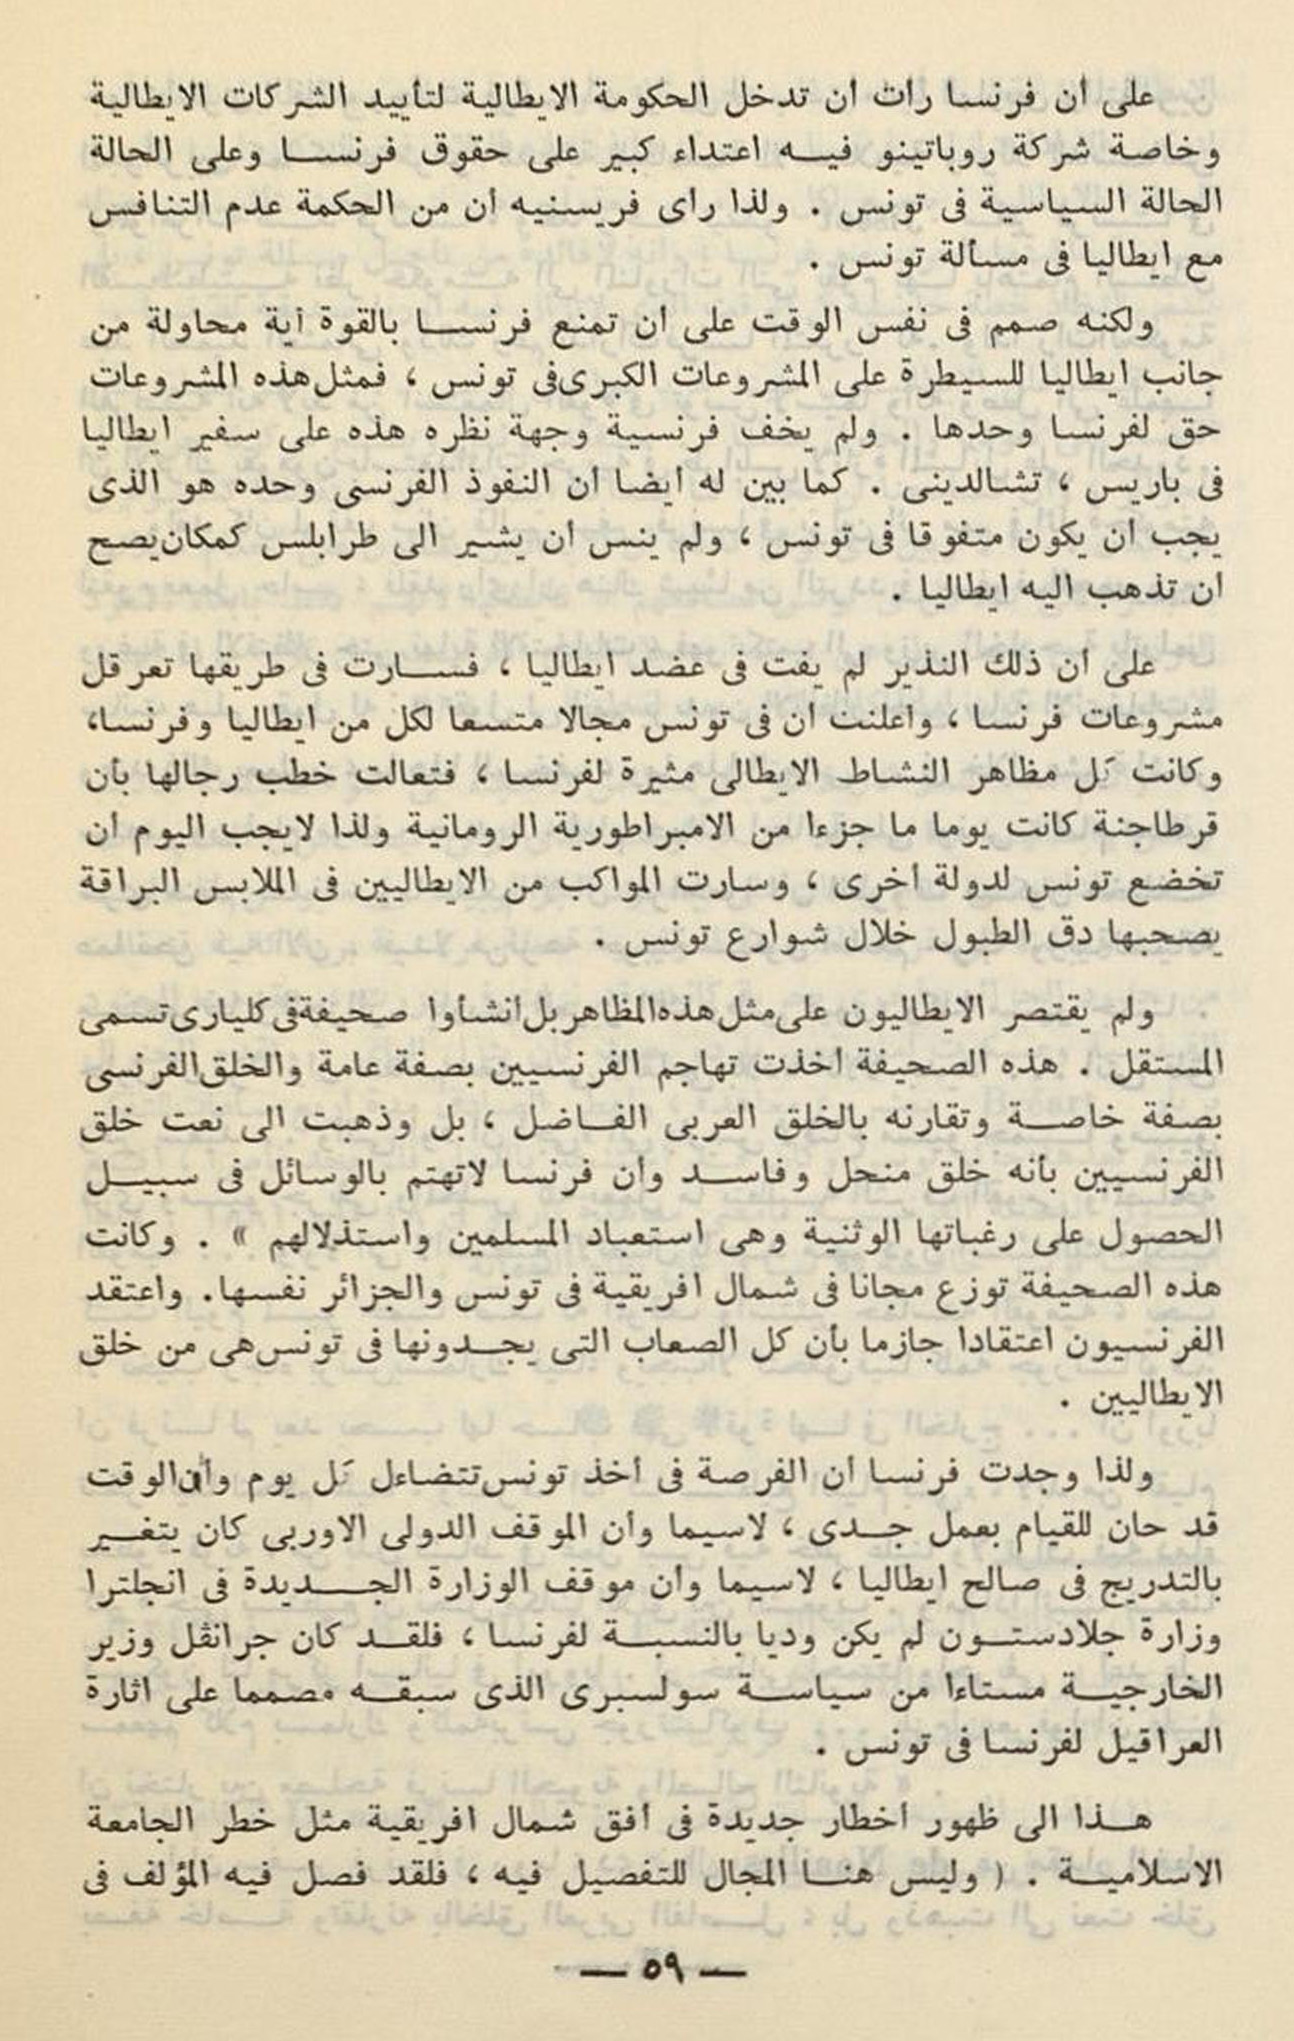 على أن فرنسا رأت أن تدخل الحكومة الايطالية لتأييد الشركات الايطالية
وخاصة شركة روباتينو فيه اعتداء كبير على حقوق فرنسا وعلى الحالة
الحالة السياسية فى تونس . ولذا رأى فريسنيه أن من الحكمة عدم التنافس
مع ايطاليا فى مسألة تونس .
ولكنه صمم فى نفس الوقت على أن تمنع فرنسا بالقوة أية محاولة من
جانب ايطاليا للسيطرة على المشروعات الكبرى فى تونس ، فمثل هذه المشروعات
حق لفرنسا وحدها . ولم يخف فرنسية وجهة نظره هذه على سفير ايطاليا
فى باريس ، تشالدينى . كما بين له أيضا أن النفوذ الفرنسى وحده هو الذى
يجب أن يكون متفوقا فى تونس ، ولم ينس أن يشير الى طرابلس كمكان يصح
أن تذهب اليه ايطاليا .
على أن ذلك النذير لم يفت فى عضد ايطاليا ، فسارت فى طريقها تعرقل
مشروعات فرنسا ، وأعلنت أن فى تونس مجالا متسعا لكل من ايطاليا وفرنسا،
وكانت كل مظاهر النشاط الايطالى مثيرة لفرنسا ، فتعالت خطب رجالها بأن
قرطاجنة كانت يوما ما جزءا من الامبراطورية الرومانية ولذا لايجب اليوم أن
تخضع تونس لدولة أخرى ، وسارت المواكب من الايطاليين فى الملابس البراقة
يصحبها دق الطبول خلال شوارع تونس .
ولم يقتصر الايطاليون على مثل هذه المظاهر بل أنشأوا صحيفة فى كليارى تسمى
المستقل . هذه الصحيفة أخذت تهاجم الفرنسيين بصفة عامة والخلق الفرنسى
بصفة خاصة وتقارنه بالخلق العربى الفاضل ، بل وذهبت الى نعت خلق
الفرنسيين بأنه خلق منحل وفاسد وأن فرنسا لاتهتم بالوسائل فى سبيل
الحصول على رغباتها الوثنية وهى استعباد المسلمين واستذلالهم » . وكانت
هذه الصحيفة توزع مجانا فى شمال افريقية فى تونس والجزائر نفسها. واعتقد
الفرنسيون اعتقادا جازما بأن كل الصعاب التى يجدونها فى تونس هى من خلق
الايطاليين .
ولذا وجدت فرنسا أن الفرصة فى أخذ تونس تتضاءل كل يوم وأن الوقت
قد حان للقيام بعمل جدى ، لاسيما وأن الموقف الدولى الاوربى كان يتغير
بالتدريج فى صالح ايطاليا ، لاسيما وأن موقف الوزارة الجديدة فى انجلترا
وزارة جلادستون لم يكن وديا بالنسبة لفرنسا ، فلقد كان جرانڤل وزير
الخارجية مستاءا من سياسة سولسبرى الذى سبقه مصمما على اثارة
العراقيل لفرنسا فى تونس .
هذا الى ظهور أخطار جديدة فى أفق شمال افريقية مثل خطر الجامعة
الاسلامية . ( وليس هنا المجال للتفصيل فيه ، فلقد فصل فيه المؤلف فى
— ٥٩ —